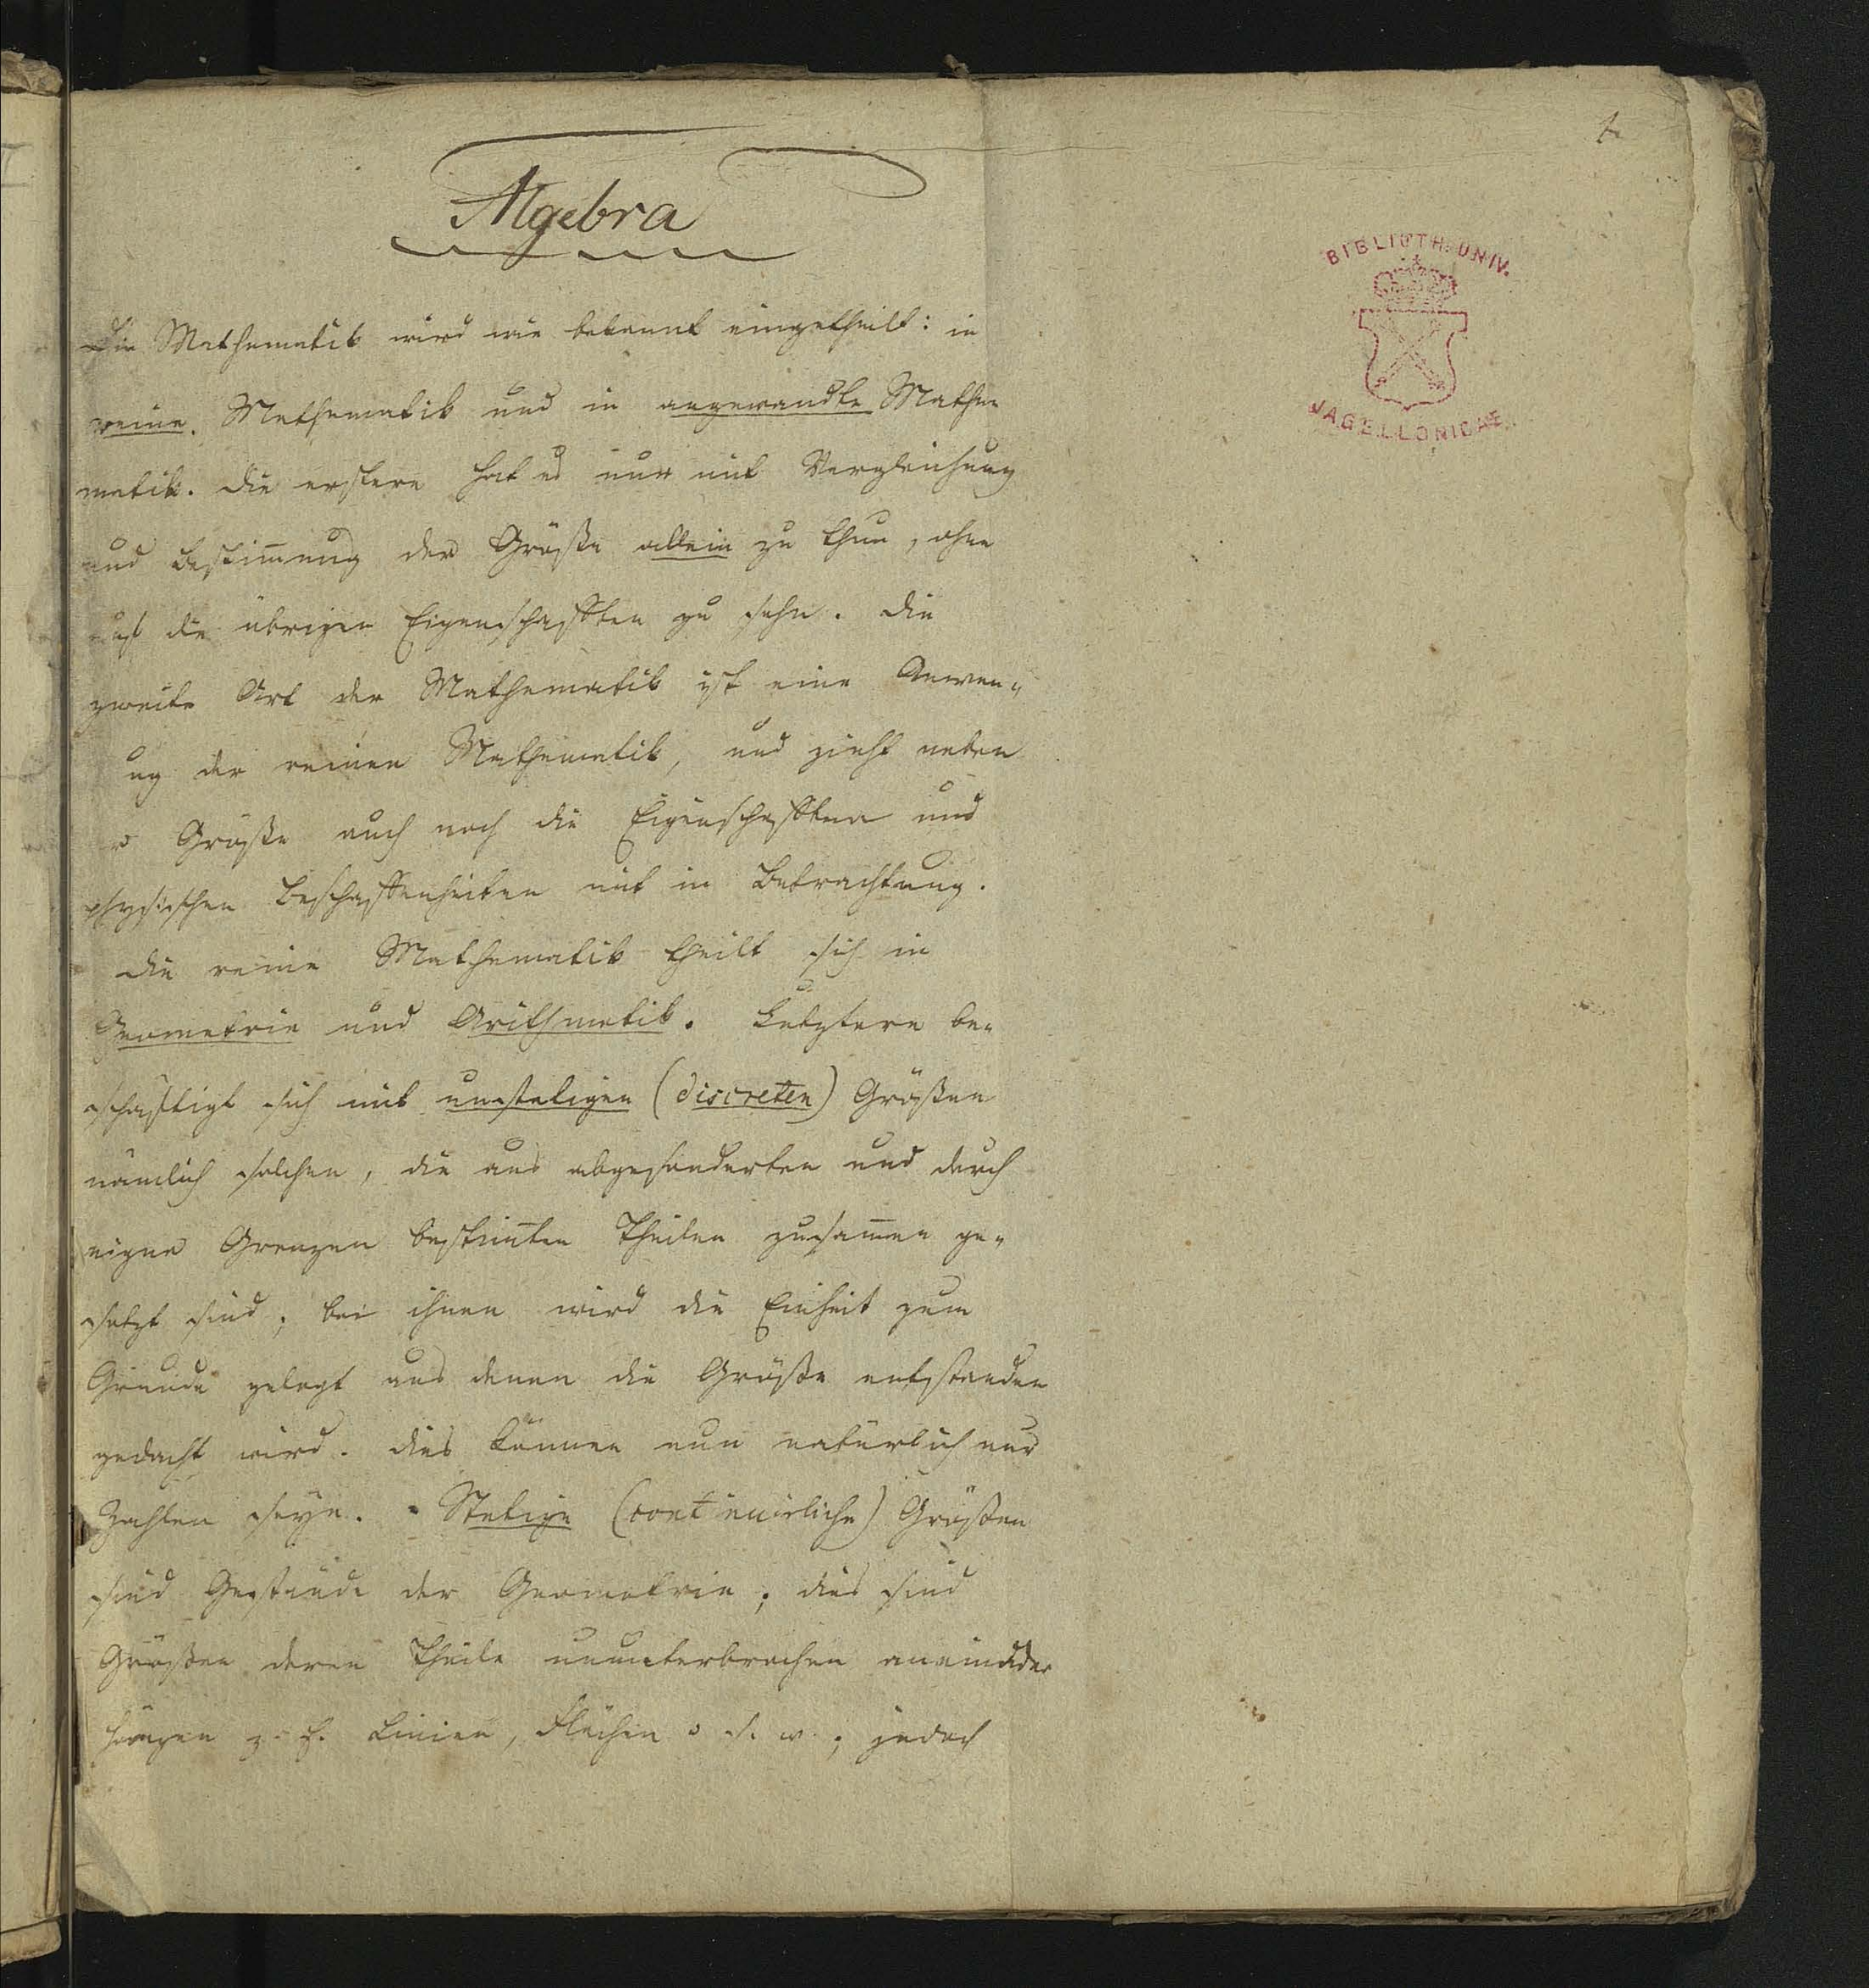 1.
Algebra
BIBLIOTH. UNIV.
JAGELLONICAE
Die Mathematik wird wie bekannt eingetheilt: in
reine Mathematik und in angewandte Mathe
matik. Die erstere hat es nur mit Vergleichung
und Bestim̅ung der Größe allein zu thun, ohne
auf die übrigen Eigenschafften zu sehn. Die
zweite Art der Mathematik ist eine Anwen„
ng der reinen Mathematik, und zieht neben
r Größe auch noch die Eigenschafften und
physischen Beschaffenheiten mit in Betrachtung.
Die reine Mathematik theilt sich in
Geometrie und Arithmetik. Letztere be„
schäftigt sich mit unstetigen (discreten) Größen
nämlich solchen, die aus abgesonderten und durch
eigne Grenzen bestim̅ten Theilen zusam̅en ge„
setzt sind; bei ihnen wird die Einheit zum
Grunde gelegt aus denen die Größe entstanden
gedacht wird. Dies können nun natürlich nur
Zahlen seyn. - Stetige (continuirliche) Größen
sind der Geometrie; dies sind
Größen deren Theile ununterbrochen aneinander
hängen z. B. Linien, Flächen u. s. w.; jedoch